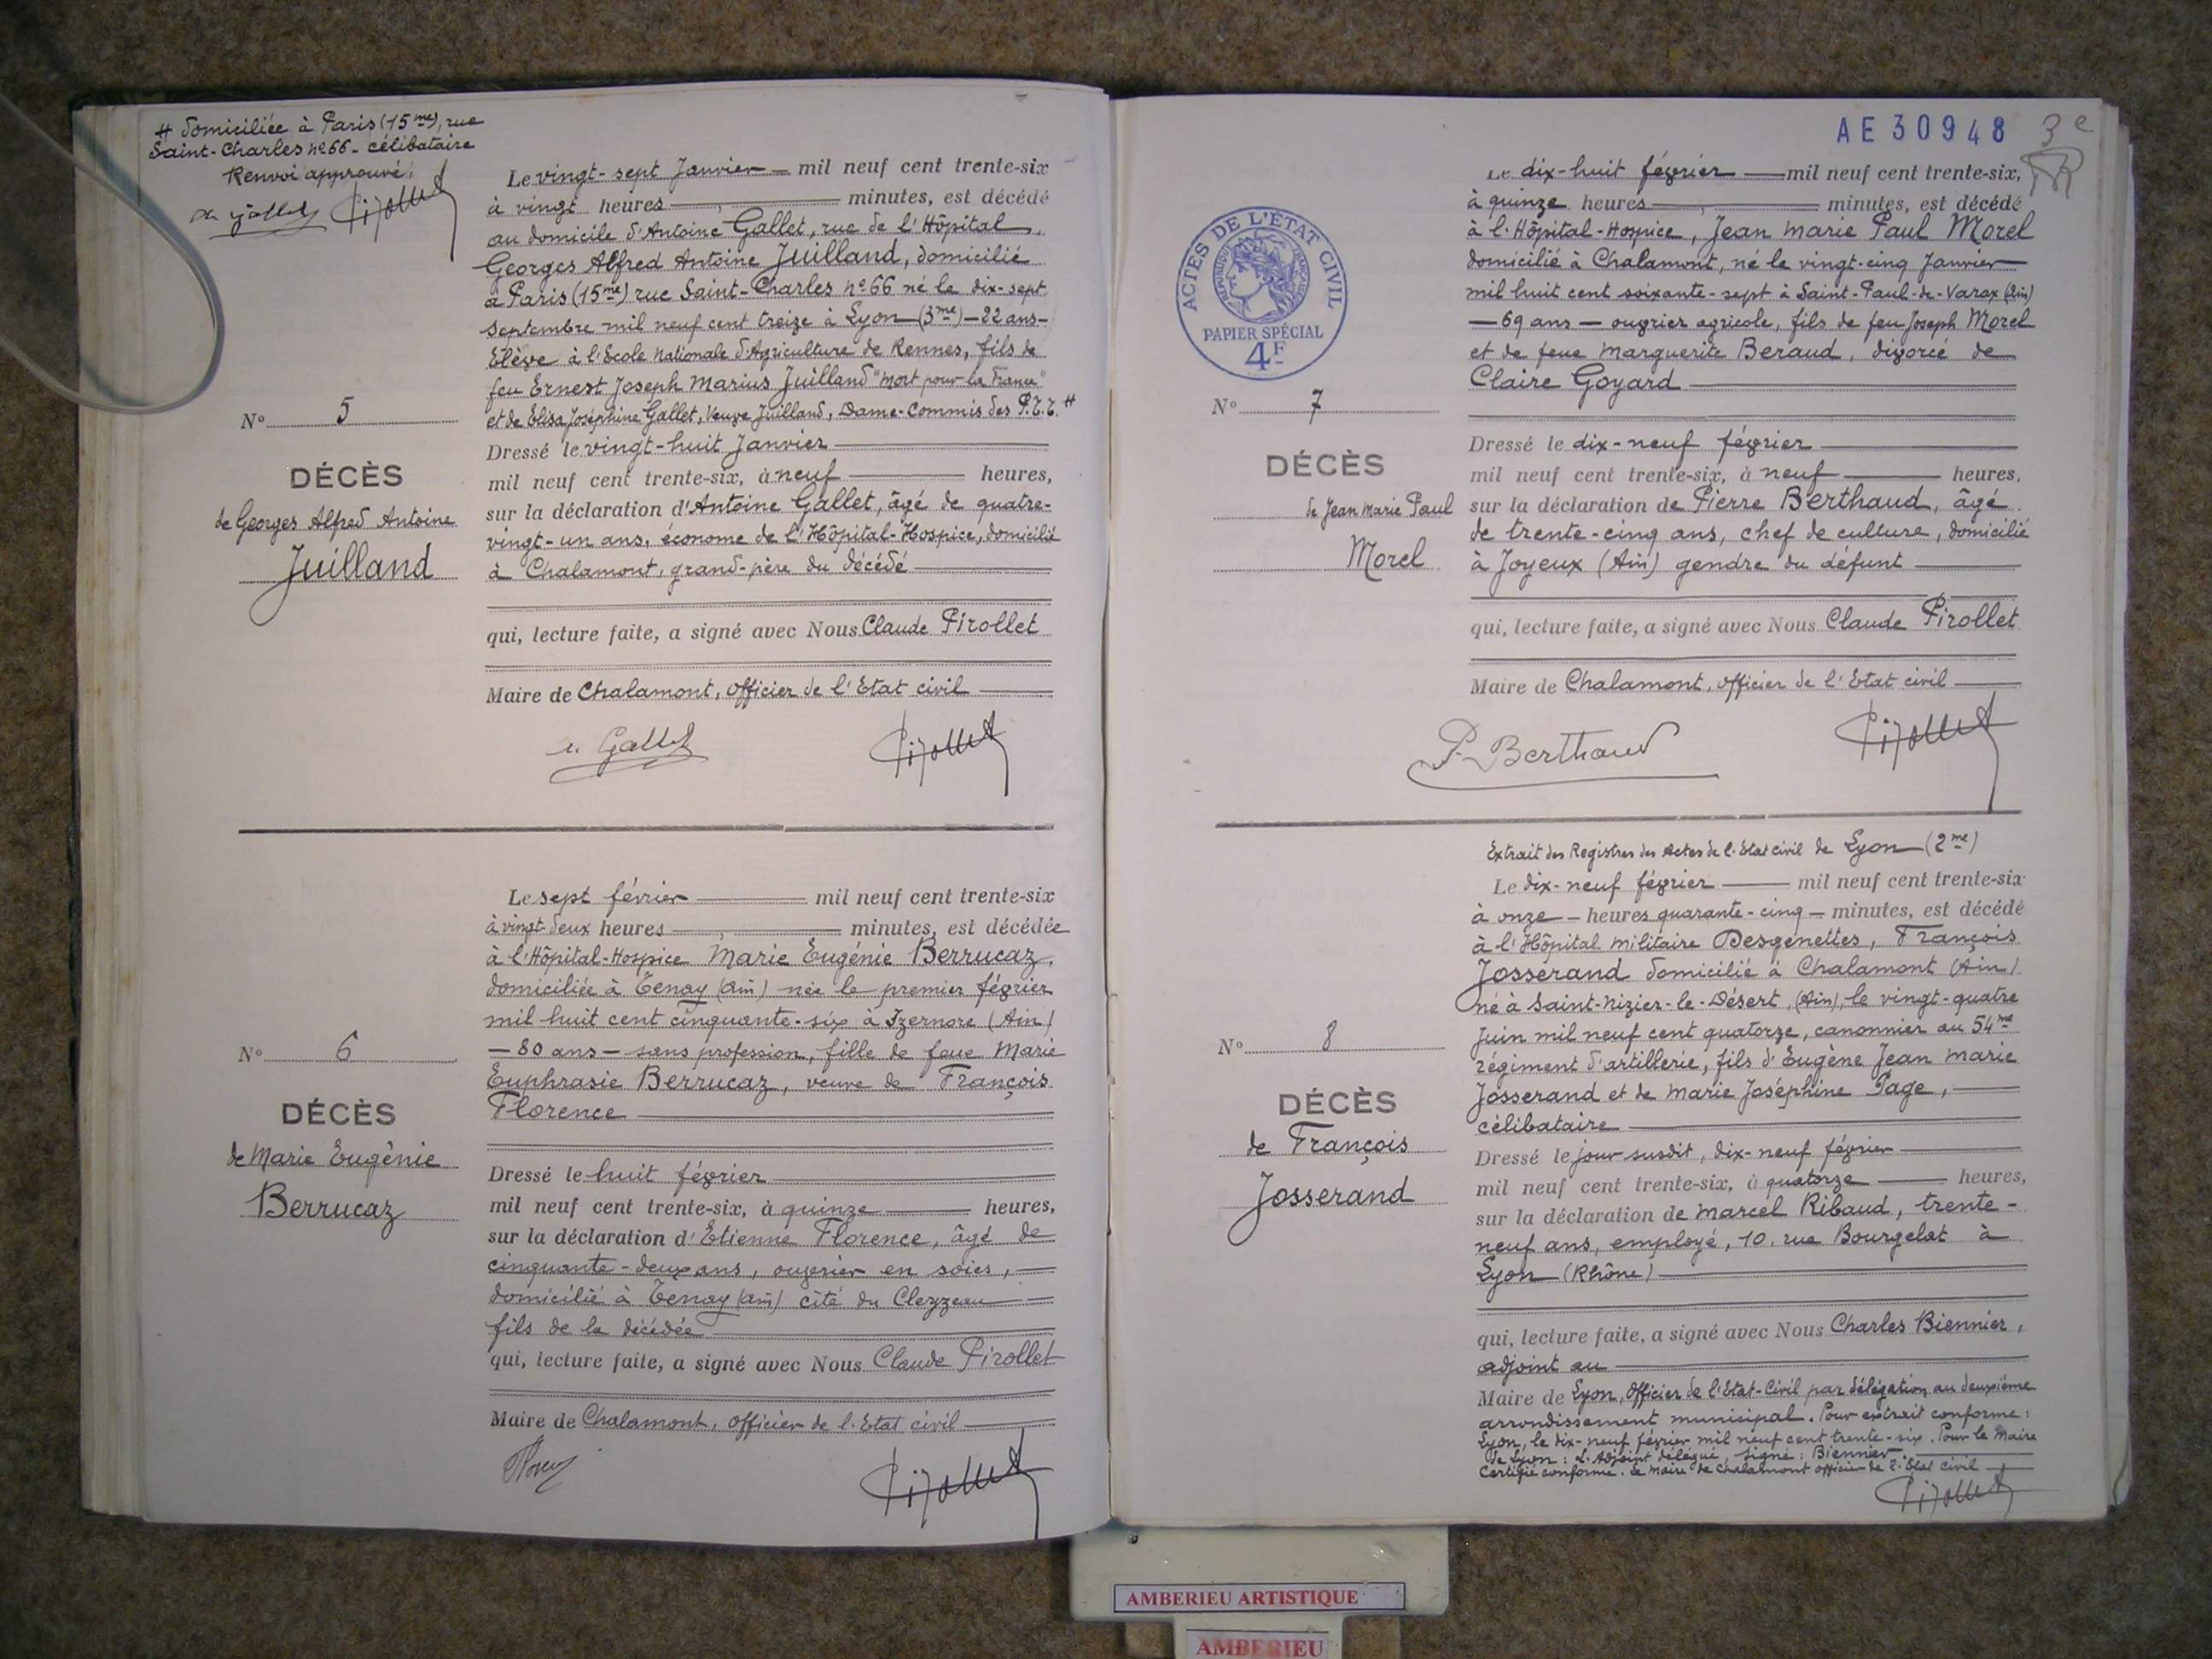 # domiciliée à Paris (15me), rue
Saint-Charles nº 66 - célibataire
Renvoi approuvé :
Gallet Pirollet
Le vingt-sept Janvier — mil neuf cent trente-six
à vingt heures —, — minutes, est décédé
au domicile d'Antoine Gallet, rue de l'Hôpital,
Georges Alfred Antoine Juilland, domicilié
à Paris (15me) rue Saint-Charles nº 66 né le dix-sept
Septembre mil neuf cent treize à Lyon (3me) — 22 ans —
Elève à l'Ecole Nationale d'Agriculture de Rennes, fils de
feu Ernest Joseph Marius Juilland "Mort pour la France"
et de Elisa Joséphine Gallet, Veuve Juilland, Dame-Commis des P.T.T. #
Nº 5
DÉCÈS
de Georges Alfred Antoine
Juilland
Dressé le vingt-huit Janvier —
mil neuf cent trente-six, à neuf — heures,
sur la déclaration d'Antoine Gallet, âgé de quatre-
vingt-un ans, économe de l'Hôpital-Hospice, domicilié
à Chalamont, grand-père du décédé —
qui, lecture faite, a signé avec Nous Claude Pirollet
Maire de Chalamont, officier de l'Etat civil —
Gallet Pirollet
Le sept février — mil neuf cent trente-six
à vingt-deux heures —, — minutes, est décédée
à l'Hôpital-Hospice Marie Eugénie Berrucaz,
domiciliée à Tenay (Ain) née le premier février
mil huit cent cinquante-six à Izernore (Ain)
— 80 ans — sans profession, fille de feue Marie
Euphrasie Berrucaz, veuve de François
Florence —
Nº 6
DÉCÈS
de Marie Eugénie
Berrucaz
Dressé le huit février —
mil neuf cent trente-six, à quinze — heures,
sur la déclaration d'Etienne Florence, âgé de
cinquante-deux ans, ouvrier en soies, —
domicilié à Tenay (Ain) cité du Cleyzeau —
fils de la décédée —
qui, lecture faite, a signé avec Nous Claude Pirollet
Maire de Chalamont, officier de l'Etat civil —
Pirollet
AE 30948 3e
ACTES DE L'ETAT CIVIL
REPUBLIQUE FRANÇAISE
PAPIER SPÉCIAL
4F
Le dix-huit février — mil neuf cent trente-six,
à quinze heures —, — minutes, est décédé
à l'Hôpital-Hospice, Jean Marie Paul Morel
domicilié à Chalamont, né le vingt-cinq Janvier —
mil huit cent soixante-sept à Saint-Paul-de-Varax (Ain)
— 69 ans — ouvrier agricole, fils de feu Joseph Morel
et de feue Marguerite Beraud, divorcé de
Claire Goyard —
Nº 7
DÉCÈS
de Jean Marie Paul
Morel
Dressé le dix-neuf février —
mil neuf cent trente-six, à neuf — heures,
sur la déclaration de Pierre Berthaud, âgé
de trente-cinq ans, chef de culture, domicilié
à Joyeux (Ain) gendre du défunt —
qui, lecture faite, a signé avec Nous Claude Pirollet
Maire de Chalamont, officier de l'Etat civil —
P. Berthaud Pirollet
Extrait des Registres des Actes de l'Etat civil de Lyon (2me)
Le dix-neuf février — mil neuf cent trente-six
à onze — heures quarante-cinq — minutes, est décédé
à l'Hôpital militaire Desgenettes, François
Josserand domicilié à Chalamont (Ain)
né à Saint-Nizier-le-Désert, (Ain), le vingt-quatre
Juin mil neuf cent quatorze, canonnier au 54me
régiment d'artillerie, fils d'Eugène Jean Marie
Josserand et de Marie Joséphine Page, —
célibataire —
Nº 8
DÉCÈS
de François
Josserand
Dressé le jour susdit, dix-neuf février —
mil neuf cent trente-six, à quatorze — heures,
sur la déclaration de Marcel Ribaud, trente-
neuf ans, employé, 10, rue Bourgelat à
Lyon (Rhône) —
qui, lecture faite, a signé avec Nous Charles Biennier,
adjoint au —
Maire de Lyon, Officier de l'Etat-Civil par délégation au deuxième
arrondissement municipal. Pour extrait conforme :
Lyon, le dix-neuf février mil neuf cent trente-six. Pour le Maire
de Lyon : L'Adjoint délégué, signé : Biennier —
Certifié conforme. Le Maire de Chalamont officier de l'Etat civil —
Pirollet
AMBERIEU ARTISTIQUE
AMBERIEU